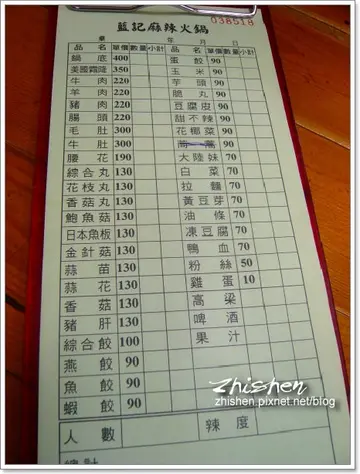 038518
藍記麻辣火鍋
桌 年 月 日
品名 單價 數量 小計 品名 單價 數量 小計
鍋底 400 蛋餃 90
美國霜降 350 玉米 90
牛肉 220 芋頭 90
羊肉 220 脆丸 90
豬肉 220 豆腐皮 90
腸頭 220 甜不辣 90
毛肚 300 花椰菜 90
牛肚 300 茼蒿 90
腰花 190 大陸妹 70
綜合丸 130 白菜 70
花枝丸 130 拉麵 70
香菇丸 130 黃豆芽 70
鮑魚菇 130 油條 70
日本魚板 130 凍豆腐 70
金針菇 130 鴨血 70
蒜苗 130 粉絲 50
蒜花 130 雞蛋 10
香菇 130 高梁
豬肝 130 啤酒
綜合餃 100 果汁
燕餃 90
魚餃 90
蝦餃 90
人數 辣度
總計
zhishen
zhishen.pixnet.net/blog